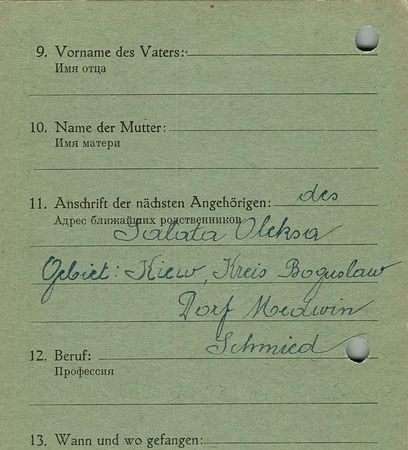 9. Vorname des Vaters:
Имя отца
10. Name der Mutter:
Имя матери
11. Anschrift der nächsten Angehörigen: des
Адрес ближайших родственников
Salata Oleksa
Gebiet: Kiew, Kreis Boguslaw
Dorf Medwin
Schmied
12. Beruf:
Профессия
13. Wann und wo gefangen: